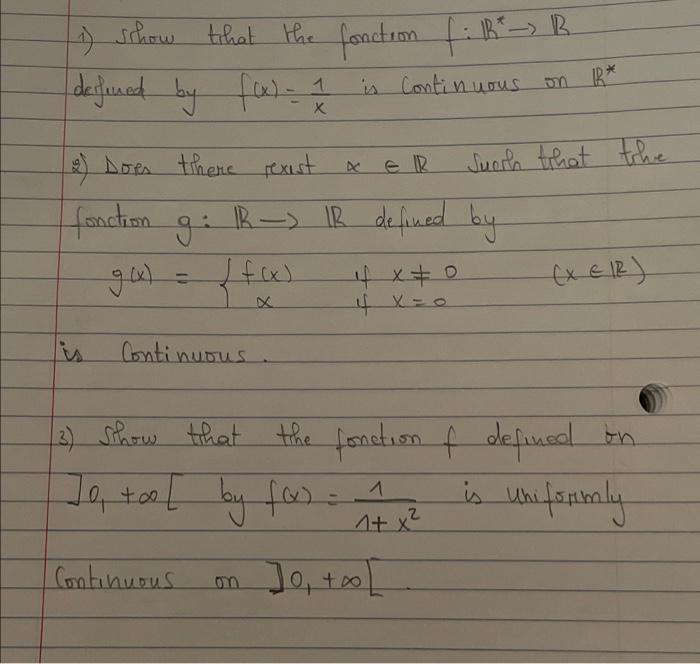 1) Show that the fonction f : ℝ* → ℝ
defined by f(x) = 1/x is continuous on ℝ*
2) Does there exist α ∈ ℝ Such that the
fonction g : ℝ → ℝ defined by
g(x) = { f(x) if x ≠ 0 (x ∈ ℝ)
α if x = 0
is Continuous.
3) Show that the fonction f defined on
]0, +∞[ by f(x) = 1/(1+x²) is uniformly
Continuous on ]0, +∞[.